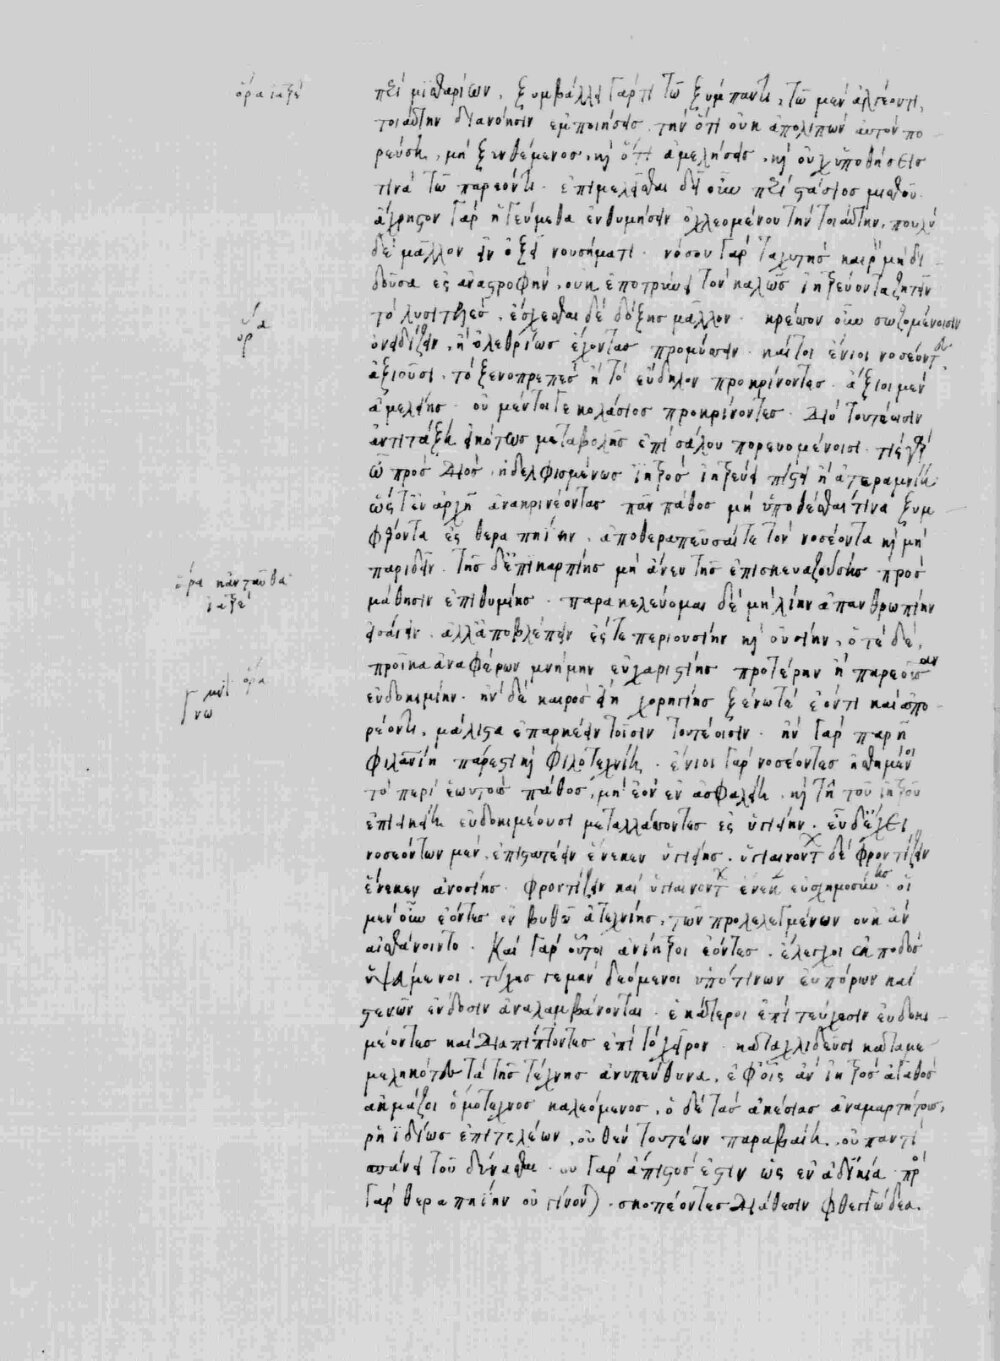 ὅρα ἰητρέ
περὶ μισθαρίων. ξυμβάλλει γάρ τι τῶ ξύμπαντι, τῶ μὲν ἀλγέοντι,
τοιαύτην διανόησιν ἐμποιήσεις τὴν ὅτι οὐκ ἀπολιπὼν αὐτὸν πο-
ρεύση, μὴ ξυνθέμενος. καὶ ὅτι ἀμελήσεις, καὶ οὐχ ὑποθήσεις
τινὰ τῶ παρεόντι. ἐπιμελεῖσθαι δεῖ οὖν περὶ στάσιος μισθοῦ.
ἄχρηστον γὰρ ἡγεύμεθα ἐνθυμήσιν ὀχλεομένου τὴν τοιαύτην, πουλὺ
δὲ μᾶλλον ἢν ὀξὺ νουσήματι. νόσου γὰρ ταχυτὴς καιρὸν μὴ δι
δοῦσα ἐς ἀναστροφὴν, οὐκ ἐποτρύνει τὸν καλῶς ἰητρεύοντα ζητεῖν
τὸ λυσιτελὲς, ἔχεσθαι δὲ δόξης μᾶλλον. κρέσσον οὖν σωζομένοισιν
ὀνειδίζειν, ἢ ὀλεθρίως ἔχοντας προμύσσειν. καίτοι ἔνιοι νοσέοντες
ἀξιοῦσι τὸ ξενοπρεπὲς ἢ τὸ εὔδηλον προκρίνοντες. ἄξιοι μὲν
ἀμελείης. οὐ μέντοιγε κολάσιος προκρίνοντες. διὸ τουτέωσιν
ἀντιτάξη εἰκότως μεταβολῆς ἐπὶ σάλου πορευομένοισι. τίς γὰρ
ὦ πρὸς διὸς, ἠδελφισμένως ἰητρὸς ἰητρεύει πίστει ἢ ἀτεραμνίη
ὥστ' ἐν ἀρχῆ ἀνακρινέοντας πᾶν πάθος μὴ ὑποθέσθαι τινὰ ξυμ
φέροντα ἐς θεραπηίην, ἀποθεραπεῦσαί τε τὸν νοσέοντα καὶ μὴ
ὅρα κἀνταῦθα
παριδεῖν. τῆς δ' ἐπικαρπίης μὴ ἄνευ τῆς ἐπισκευαζούσης πρὸς
ἰητρέ
μάθησιν ἐπιθυμίης. παρακελεύομαι δὲ μὴ λίην ἀπανθρωπίην
ἐσάγειν. ἀλλ' ἀποβλέπειν ἔς τε περιουσίην καὶ οὐσίην, ὁτὲ δὲ,
προῖκα ἀναφέρων μνήμην εὐχαριστίης προτέρην ἢ παρεοῦσαν
εὐδοκιμίην. ἢν δὲ καιρὸς εἴη χορηγίης ξένω τὲ ἐόντι καὶ ἀπο-
ρέοντι, μάλιστα ἐπαρκέειν τοῖσιν τουτέοισιν. ἢν γὰρ παρῆ
φιλανίη πάρεστι καὶ φιλοτεχνίη. ἔνιοι γὰρ νοσέοντες ἠσθημένοι
τὸ περὶ ἑωυτοὺς πάθος, μὴ ἐὸν ἐν ἀσφαλείη. καὶ τῆ τοῦ ἰητροῦ
ἐπιεικείη εὐδοκιμέουσι μεταλλάσσοντες ἐς ὑγιείην. εὖ δ' ἔχει
νοσεόντων μὲν, ἐπιστατέειν ἕνεκεν ὑγιείης. ὑγιαινόντων δὲ φροντίζειν
ἕνεκεν ἀνοσίης. φροντίζειν καὶ ὑγιαινόντων ἕνεκεν εὐσχημοσύνης. οἱ
μὲν οὖν ἐόντες ἐν βυθῶ ἀτεχνίης, τῶν προλελεγμένων οὐκ ἂν
αἰσθάνοιντο. Καὶ γὰρ οὗτοι ἀνίητροι ἐόντες. ἐλέγχοι ἐκ ποδὸς
ὑψούμενοι. τύχης γε μὴν δεόμενοι ὑπό τινων εὐπόρων καὶ
στενῶν ἔνδοσιν ἀναλαμβάνονται. ἑκάτεροι ἐπὶ τεύχεσιν εὐδοκι-
μέοντες καὶ διαπίπτοντες ἐπὶ τὸ χεῖρον. καταχλιδεῦσι κατημε
μεληκότες τὰ τῆς τέχνης ἀνυπεύθυνα. ἐφ' οἷς ἂν ἰητρὸς ἀγαθὸς
ἀκμάζοι ὁμότεχνος καλεόμενος, ὁ δὲ τὰς ἀκέσιας ἀναμαρτήτους,
ρηϊδίως ἐπιτελέων, οὐθὲν τουτέων παραβαίη, οὐ παντὶ
σπάνει τοῦ δύνασθαι. οὐ γὰρ ἄπιστός ἐστιν ὡς ἐν ἀδικία. πρὸς
γὰρ θεραπηίην οὐ γίνονται σκοπέοντες διάθεσιν φθεγγώδεα.